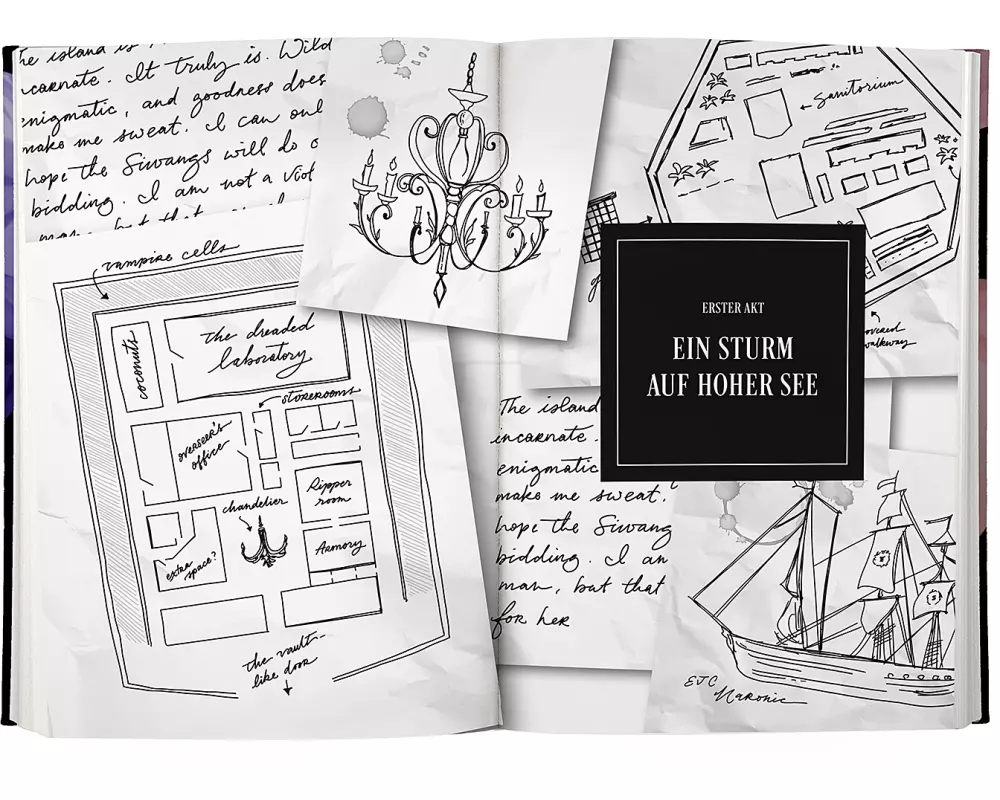 The island is
incarnate. It truly is. Wild
enigmatic, and goodness does
make me sweat. I can onl
hope the Siwangs will do
bidding. I am not a viol
man, but that
vampire cells
coconuts
the dreaded
laboratory
storerooms
overseer's
office
chandelier
Ripper
room
Armory
extra
space?
the vault-
like door
Sanitorium
covered
walkway
ERSTER AKT
EIN STURM
AUF HOHER SEE
The island
incarnate.
enigmatic
make me sweat.
hope the Siwang
bidding. I am
man, but that
for her
ETC
Naronic